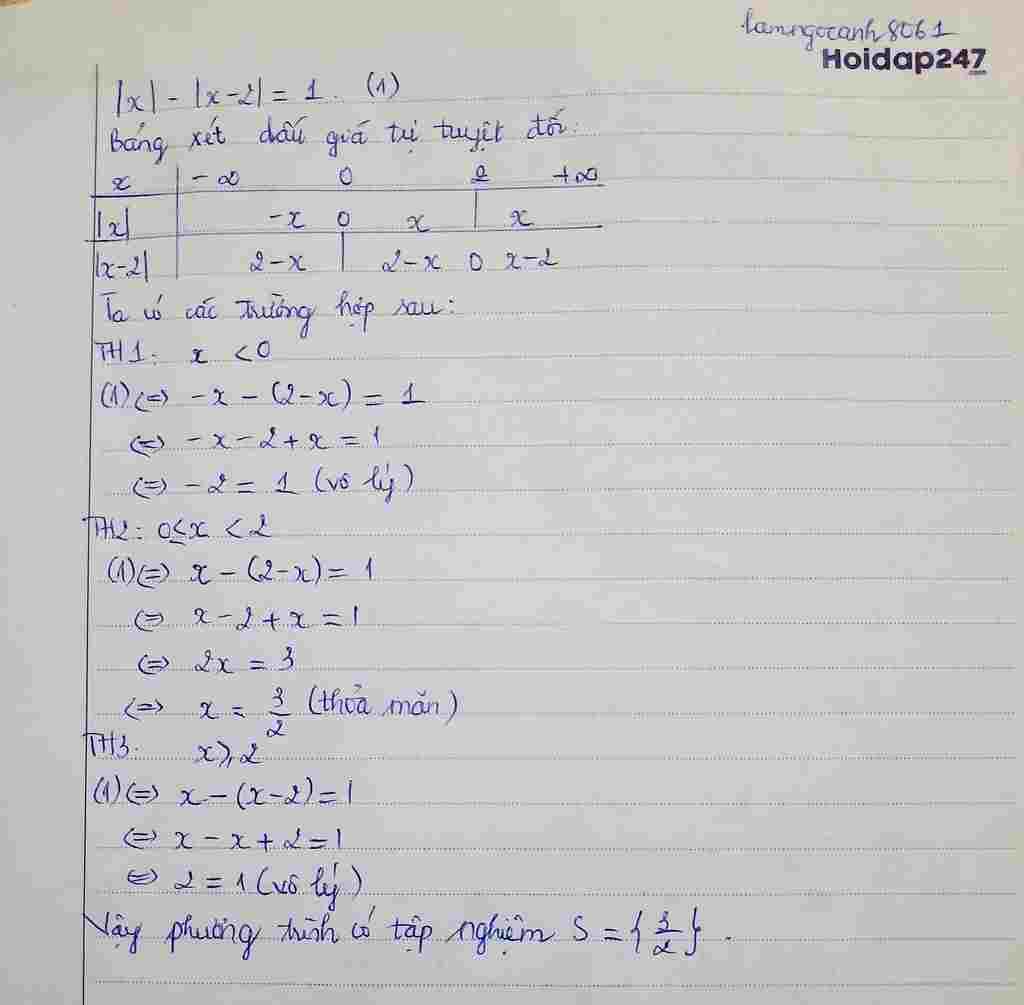 lamngocanh8061
Hoidap247
.com
|x| - |x-2| = 1. (1)
Bảng xét dấu giá trị tuyệt đối:
x -∞ 0 2 +∞
|x| -x 0 x | x
|x-2| 2-x | 2-x 0 x-2
Ta có các trường hợp sau:
TH1: x < 0
(1) <=> -x - (2-x) = 1
<=> -x - 2 + x = 1
<=> -2 = 1 (vô lý)
TH2: 0 ≤ x < 2
(1) <=> x - (2-x) = 1
<=> x - 2 + x = 1
<=> 2x = 3
<=> x = 3/2 (thỏa mãn)
TH3: x ≥ 2
(1) <=> x - (x-2) = 1
<=> x - x + 2 = 1
<=> 2 = 1 (vô lý)
Vậy phương trình có tập nghiệm S = {3/2}.